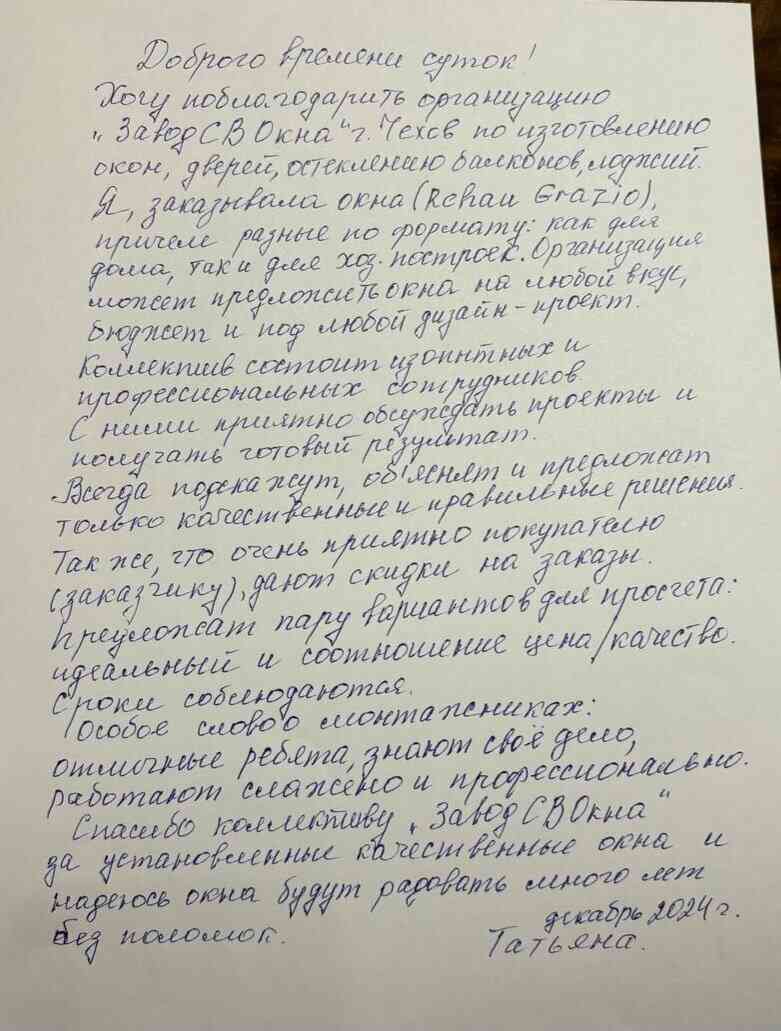 Доброго времени суток!
Хочу поблагодарить организацию
"Завод СВ Окна" г. Чехов по изготовлению
окон, дверей, остеклению балконов, лоджий.
Я, заказывала окна (Rehau Grazio),
причем разные по формату: как для
дома, так и для хоз. построек. Организация
может предложить окна на любой вкус,
бюджет и под любой дизайн-проект.
Коллектив состоит из опытных и
профессиональных сотрудников.
С ними приятно обсуждать проекты и
получать готовый результат.
Всегда подскажут, об'яснят и предложат
только качественные и правильные решения.
Так же, что очень приятно покупателю
(заказчику), дают скидки на заказы.
Предложат пару вариантов для просчета:
идеальный и соотношение цена/качество.
Сроки соблюдаются.
Особое слово о монтажниках:
отличные ребята, знают своё дело,
работают слажено и профессионально.
Спасибо коллективу "Завод СВ Окна"
за установленные качественные окна и
надеюсь окна будут радовать много лет
без поломок.
декабрь 2024 г.
Татьяна.